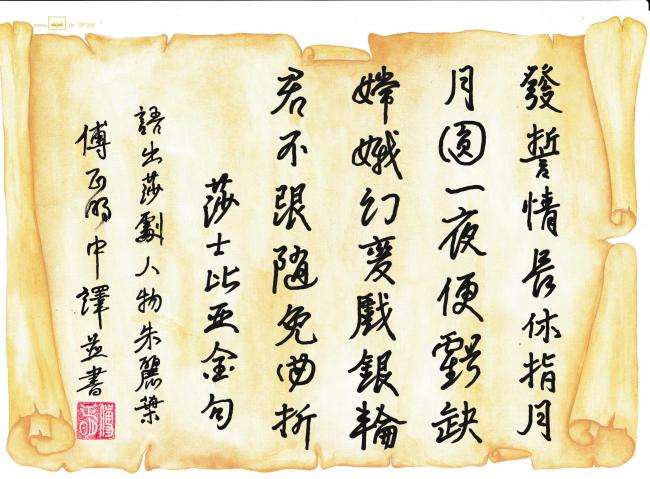 www.sigel.de DP 235
發誓情長休指月
月圓一夜便虧缺
嫦娥幻変戲銀輪
君不跟随免曲折
莎士比亚金句
語出莎劇人物朱麗葉
傅正明中譯並書